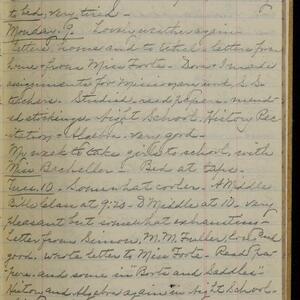 to bed, very tired.
Monday, 9. Lovely weather again
letters, home and to Ethel & letters from
home & from Miss Foote. Dora & I made
assignments for Missionary and S. S.
teachers. Studied, read papers, mend-
ed stockings. Night School, History Rec-
itation & Algebra. Very good.
My week to take girls to school, with
Miss Bechellen. Bed at taps.
Tues. 10. Somewhat cooler. A Middle
Bible class at 9:20. D Middle at 10. very
pleasant but somewhat exhaustive.
Letter from Simeon, M. M. Fuller,
good. Wrote letter to Miss Foote. Read pa-
pers and some in "Boots and Saddles"
History and Algebra again in Night School.